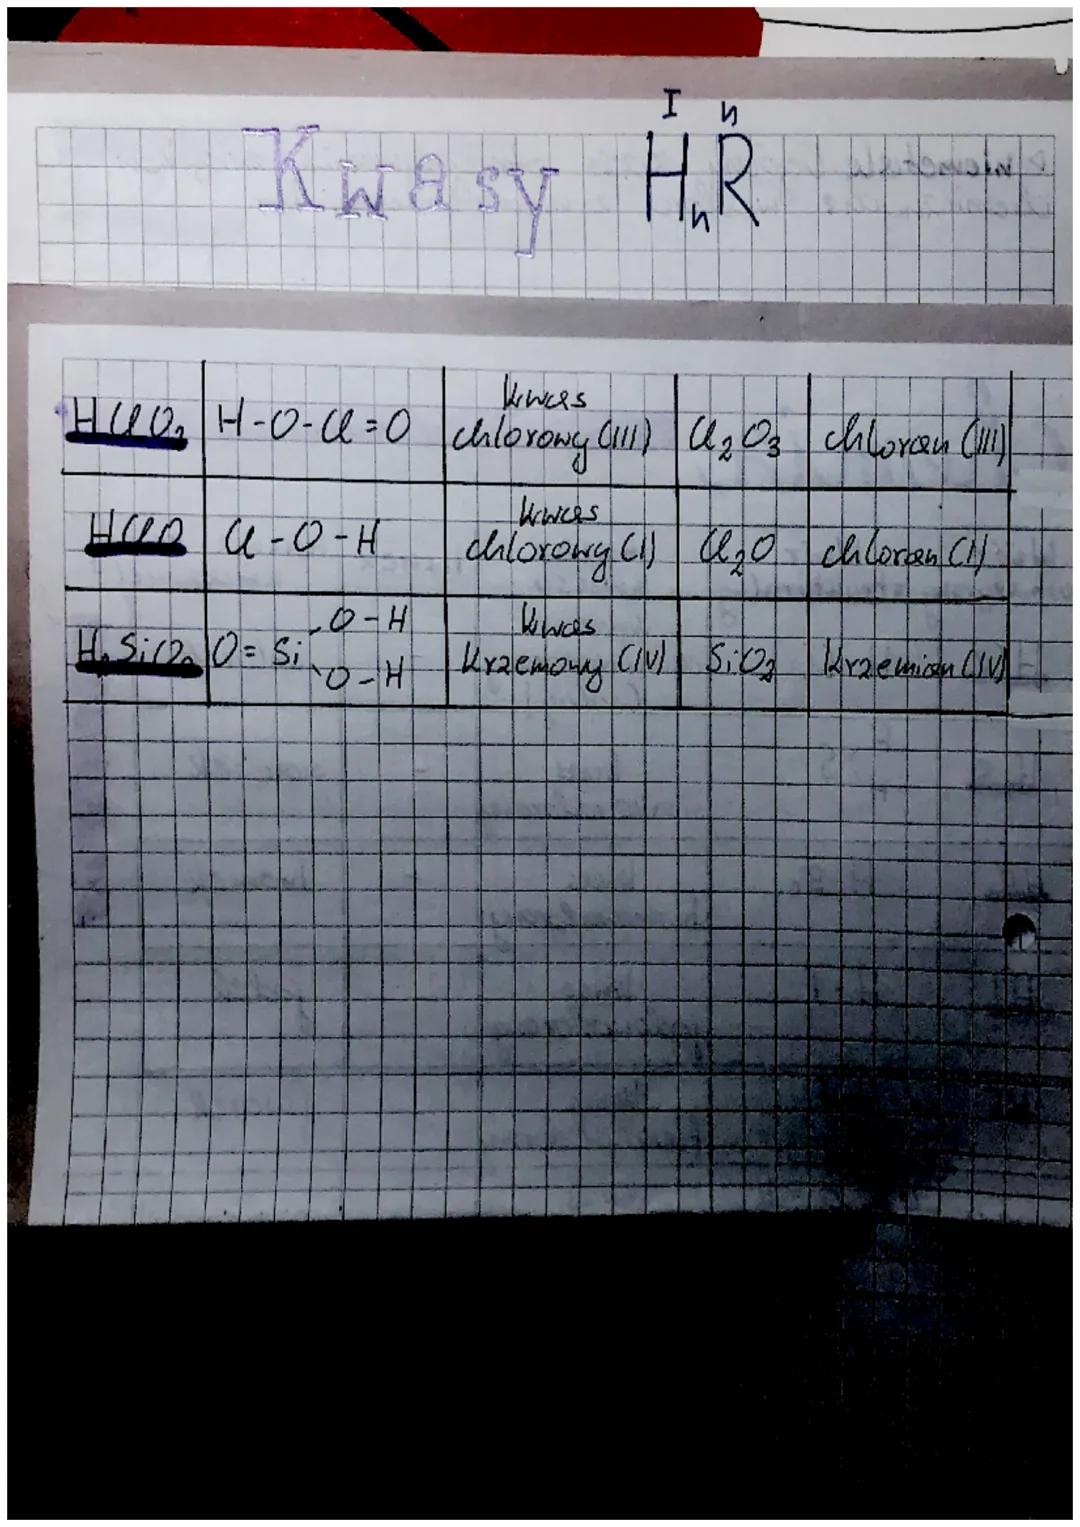 Kwasy
I n
HₙR
HClO₂ H-O-Cl=O kwas chlorowy (III) Cl₂O₃ chloran (III)
HClO Cl-O-H kwas chlorowy (I) Cl₂O chloran (I)
H₂SiO₃ O=Si O-H O-H kwas krzemowy (IV) SiO₂ krzemian (IV)